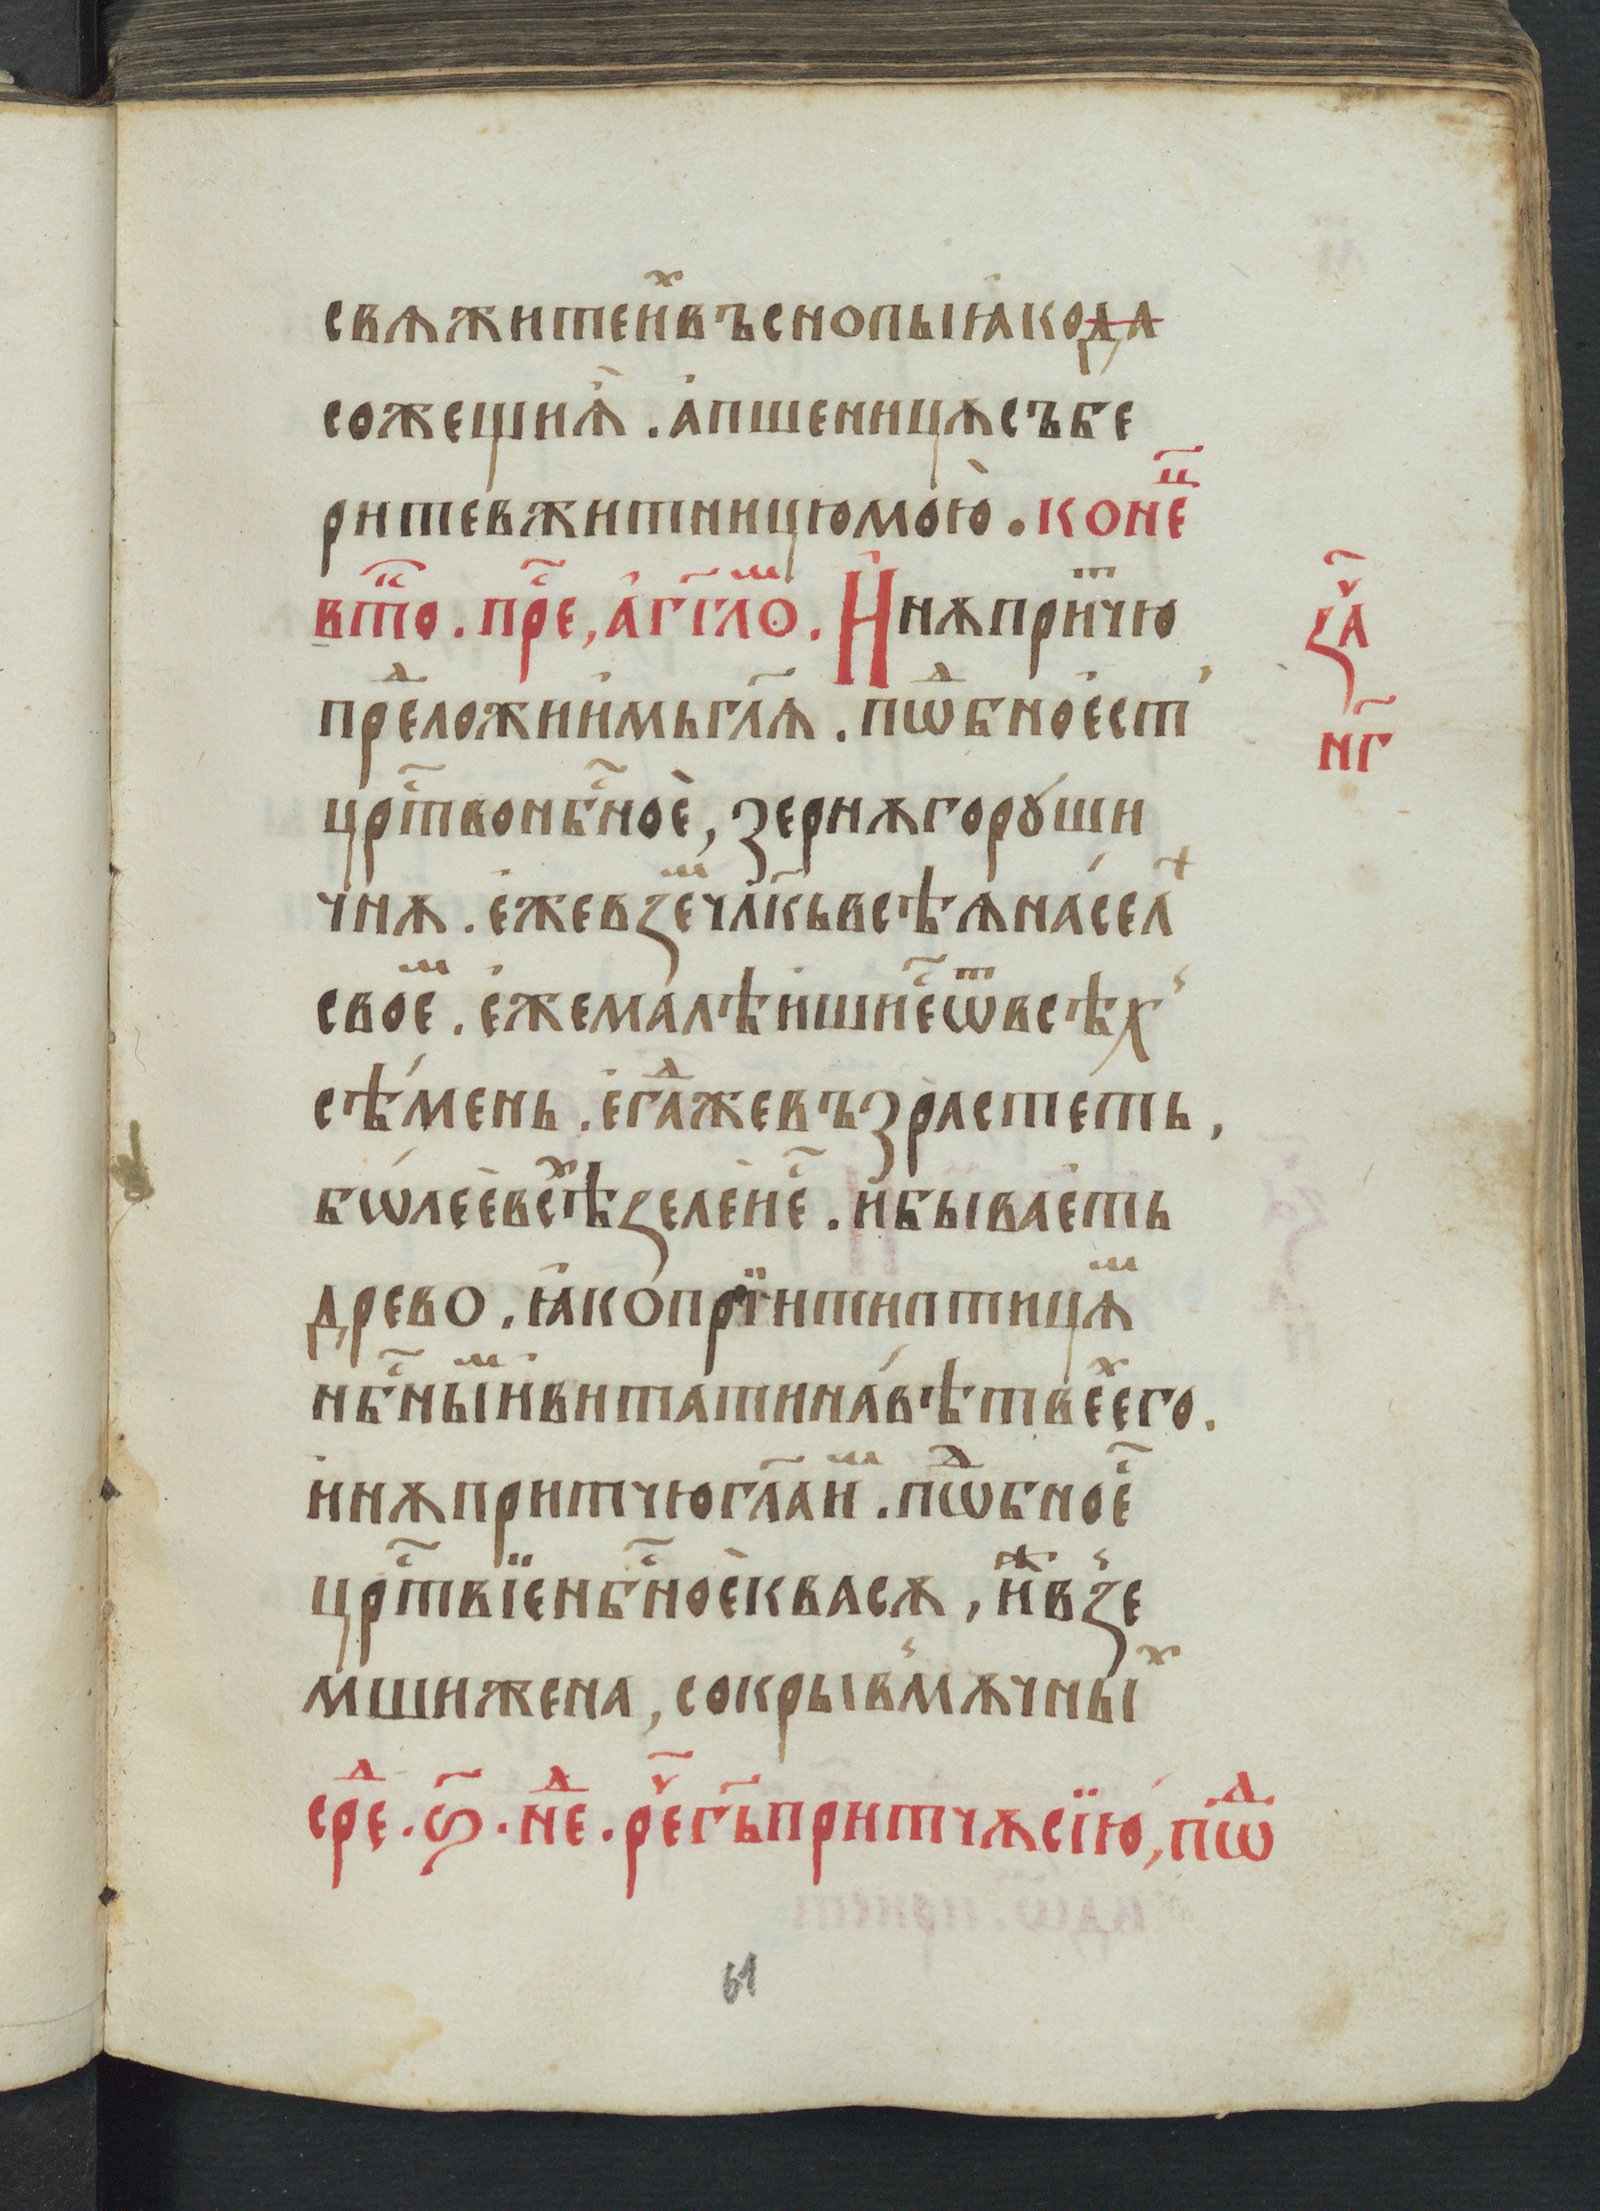 свѧжитеи҆ⷯвъснопыꙗ҆кода
сожещиѧ̀. а҆пшеницѫсъбе
ритевжитницюмою̀. коне҇ⷰ҇
втⷭ҇о. прⷭ҇е, а҆гг҃лоⷨ. И҆нѫпри́ⷮчю
преⷣложии҆мьгл҃ѧ. пѡⷣбное҆ст
црⷭ҇твонбⷭ҇ноѐ, зернѫгорꙋши
чнѫ. е҆жевꙁеⷨчл҃кьвсѣѧна́сел
своеⷨ. е҆жемалѣи҆шиⷭ҇еѿвсѣх
сѣ́мень. е҆гⷣажевъзрасте́ть,
бѡ́леѐвсѣⷯꙁеле́иⷭ҇е. и҆быва́еть
древо. ꙗ҆кѻпрїитиптицѧⷨ
нбⷭ҇ныⷨи҆витатина́вѣтвеⷯего.
и҆нѫпритчюгл҃аи҆ⷨ. пѡⷣбноⷭ҇е
црⷭ҇твїенбⷭ҇ноѐквасѫ, и҆ⷤвꙁе
мшижена, сокрывмѫчныⷯ
среⷣ. ѕ҃. неⷣ. рⷱ҇егⷭ҇ьпритчѫсїю, пѡⷣ
ꙁаⷱ҇
нг҃
61